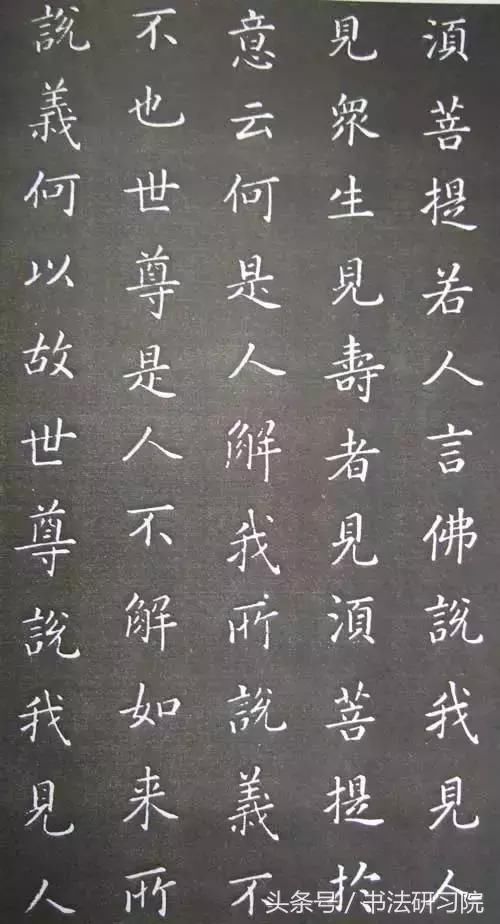 湏菩提若人言佛說我見人
見眾生見壽者見湏菩提於
意云何是人解我所說義不
不也世尊是人不解如来所
說義何以故世尊說我見人
头条号/书法研习院